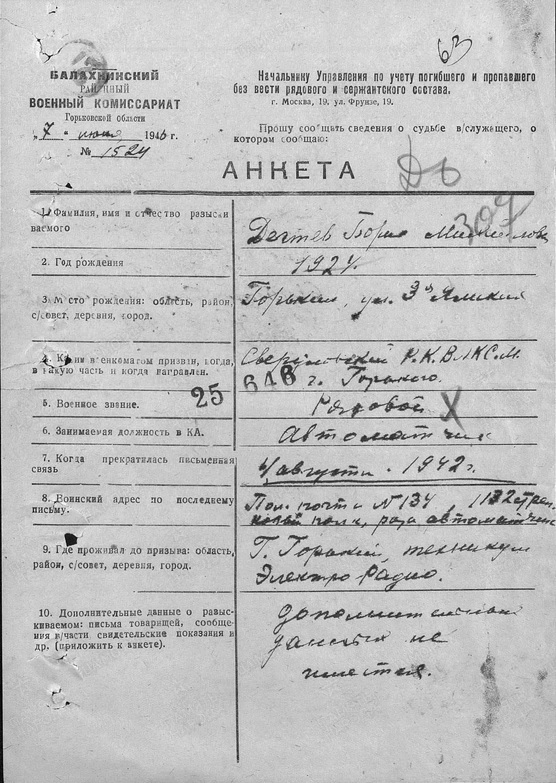 63
БАЛАХНИНСКИЙ
РАЙОННЫЙ
ВОЕННЫЙ КОМИССАРИАТ
Горьковской области
"7" июня 1946 г.
№ 1524
Начальнику Управления по учету погибшего и пропавшего
без вести рядового и сержантского состава,
г. Москва, 19, ул. Фрунзе, 19.
Прошу сообщать сведения о судьбе в/служащего, о
котором сообщаю:
АНКЕТА
307
1. Фамилия, имя и отчество разыски
ваемого
Дегтев Борис Михайлов
2. Год рождения
1924.
3. Место рождения: область, район,
с/совет, деревня, город.
Горький, ул. 3я Ямская
4. Каким военкоматом призван, когда,
в какую часть и когда направлен.
Свердловский Р.К.ВЛКС.М.
г. Горького.
25 646
5. Военное звание.
Рядовой X
6. Занимаемая должность в КА.
Автоматчик
7. Когда прекратилась письменная
связь
августа. 1942 г.
8. Воинский адрес по последнему
письму.
Пол. почта N 134, 1132 стрел
ковый полк, рота автоматчик
9. Где проживал до призыва: область,
район, с/совет, деревня, город.
Г. Горький, техникум
Электро-Радио.
10. Дополнительные данные о разыс-
киваемом: письма товарищей, сообще-
ния в/части свидетельские показания и
др. (приложить к анкете).
дополнительных
данных не
имеется.